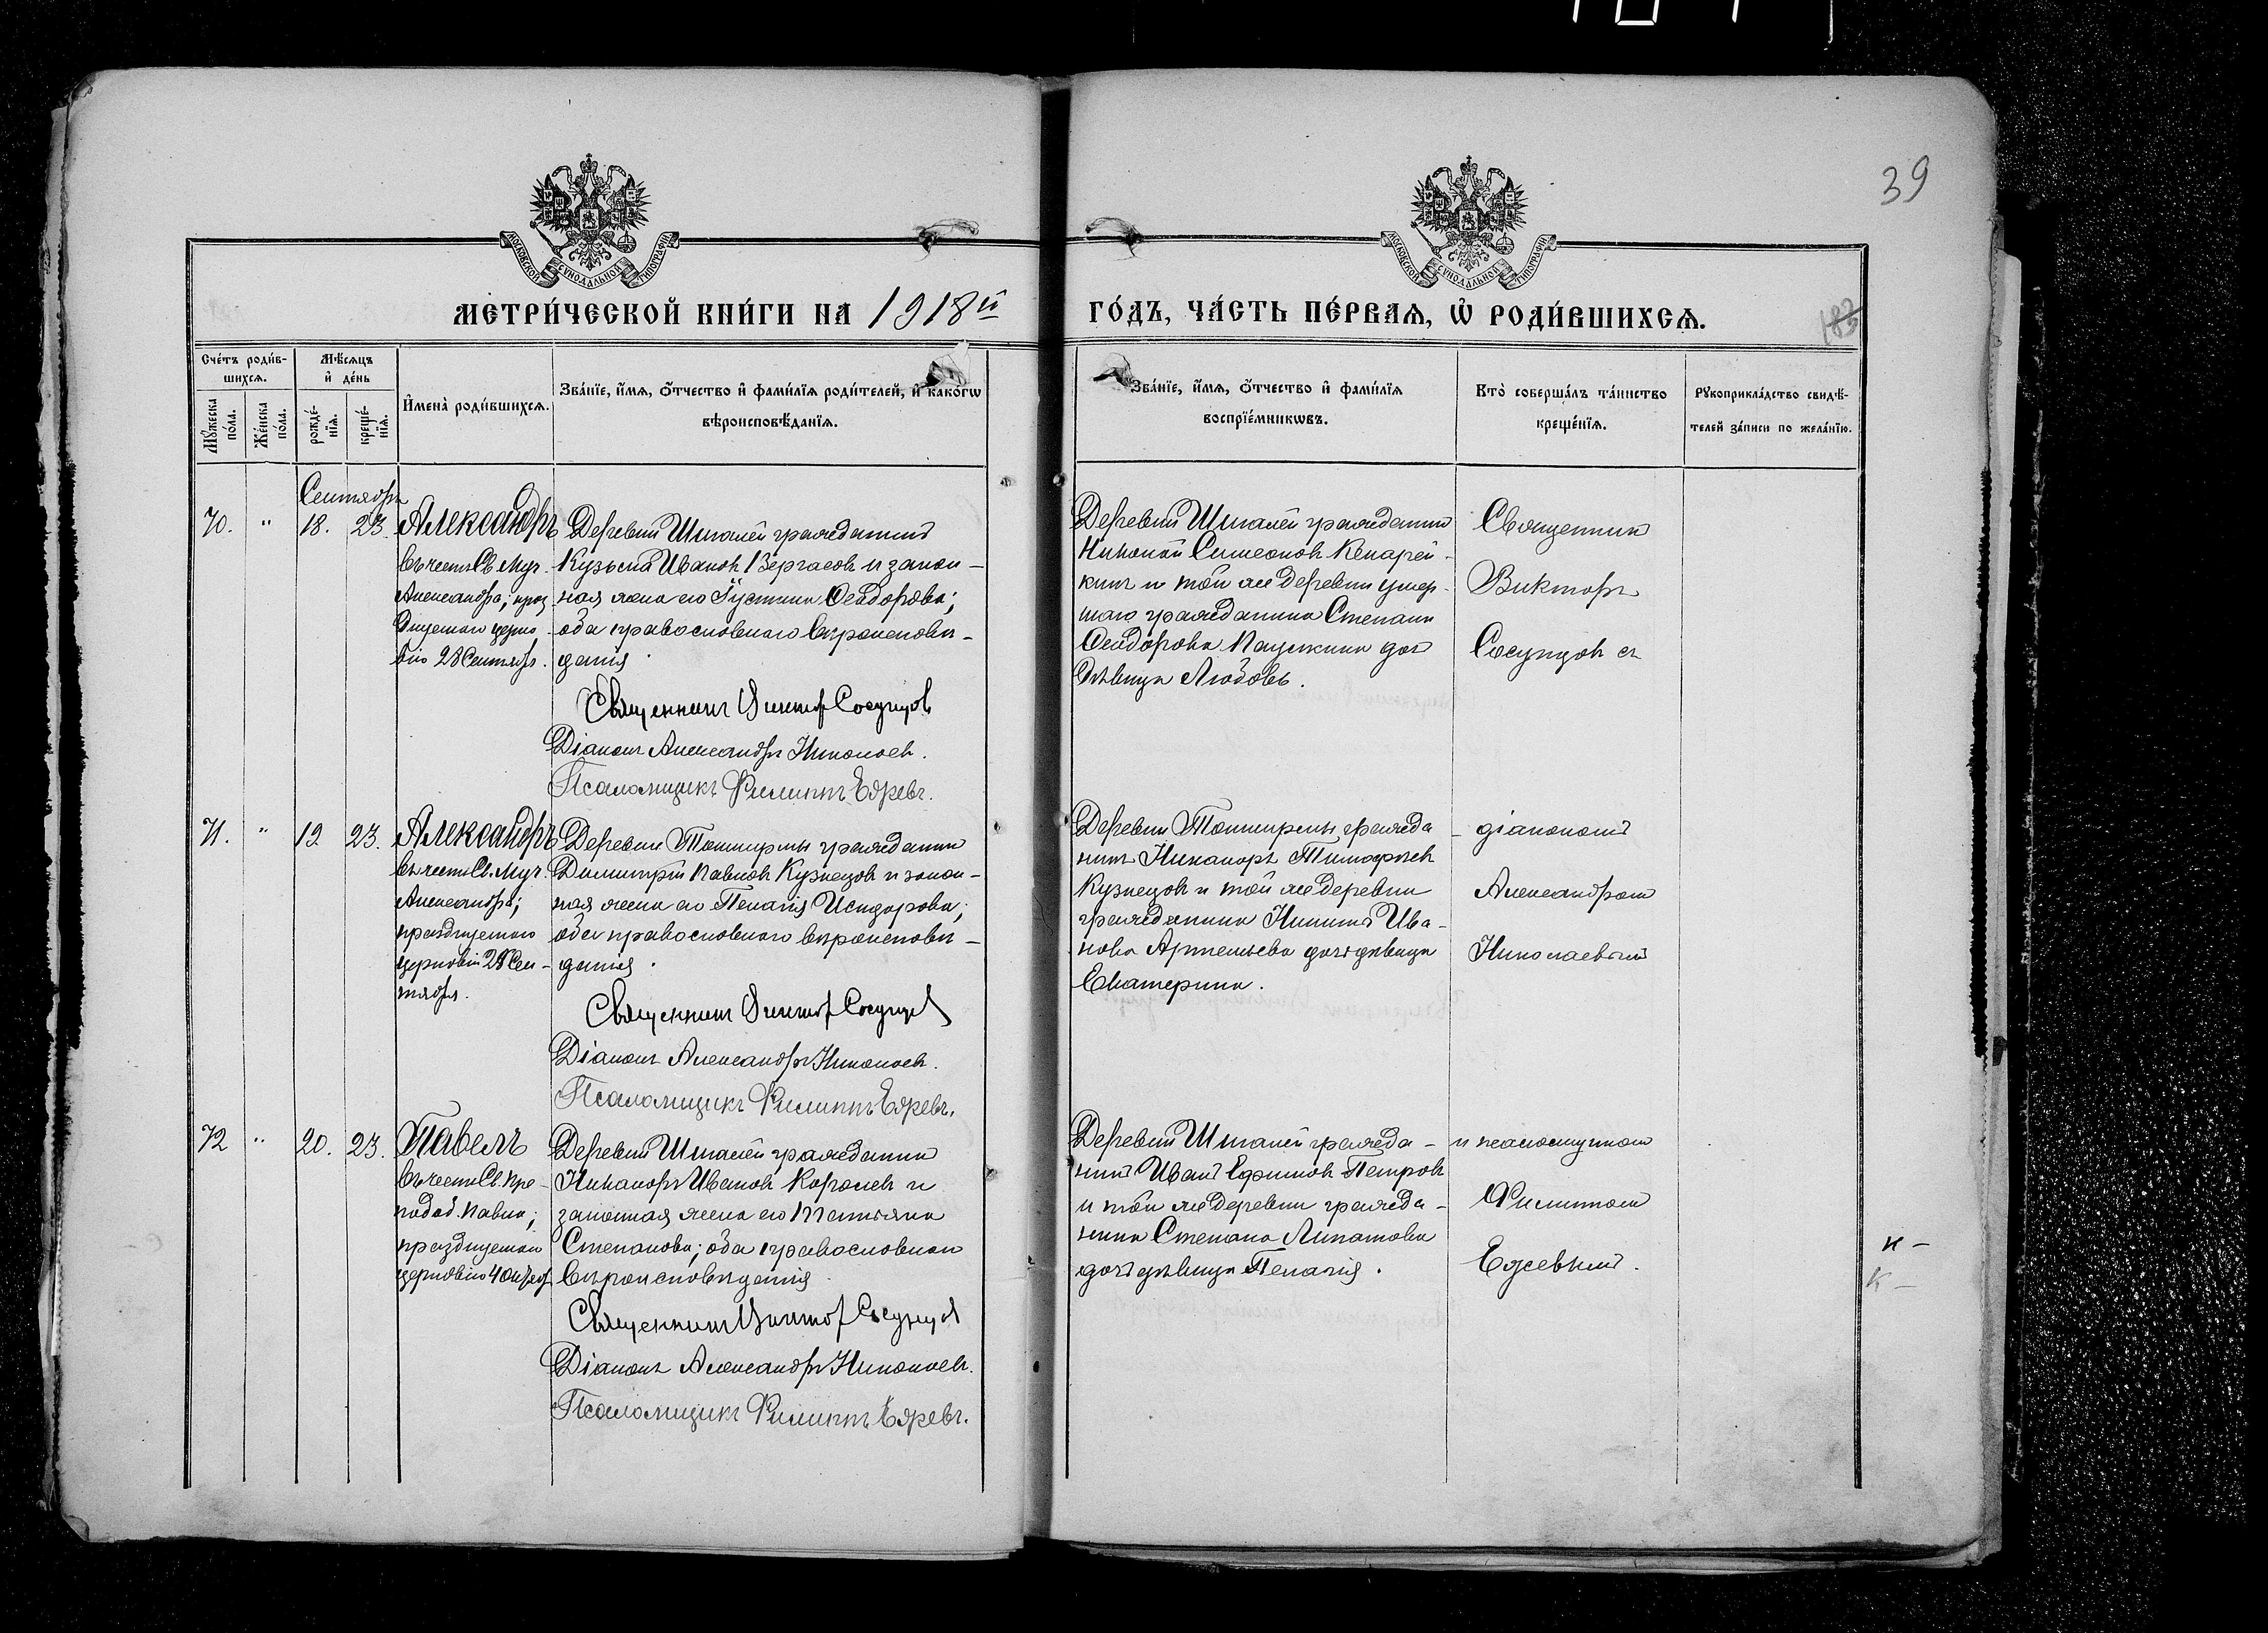 39
МОСКОВСКОЙ СѴНОДАЛЬНОЙ ТИПОГРАФІИ
МОСКОВСКОЙ СѴНОДАЛЬНОЙ ТИПОГРАФІИ
МЕТРИ́ЧЕСКОЙ КНИ́ГИ НА 1918й
ГО́ДЪ, ЧА́СТЬ ПЕ́РВАѦ, Ѡ҆ РОДИ́ВШИХСѦ.
183
Сче́тъ роди́в-
шихсѧ.
Мꙋ́жеска по́ла.
Же́нска по́ла.
Мѣ́сѧцъ
и҆ де́нь
рожде́-
нїѧ.
креще́-
нїѧ.
И҆мена̀ роди́вшихсѧ.
Зва́нїе, и҆́мѧ, ѻ҆́тчество и҆ фами́лїѧ роди́телей, и҆ како́гѡ
вѣроисповѣ́данїѧ.
Зва́нїе, и҆́мѧ, ѻ҆́тчество и҆ фами́лїѧ
воспрїе́мникѡвъ.
Кто̀ соверша́лъ та́инство
креще́нїѧ.
Рꙋкоприкла́дство свидѣ́-
телей за́писи по жела́нїю.
Сентябрь
70. " 18. 23. Александръ
въ честь Св. Муч.
Александра; праз
днуемаго церко
вію 28 Сентябр.
Деревни Шигалей гражданинъ
Кузьма Ивановъ и закон-
ная жена его Іустина Ѳеодорова;
оба православнаго вѣроисповѣ-
данія.
Священникъ Викторъ Сосунцовъ
Діаконъ Александръ Николаевъ.
Псаломщикъ Филиппъ
Деревни Шигалей гражданинъ
Николай Симеоновъ
кинъ и той же деревни умер-
шаго гражданина Степана
Ѳеодорова дочь
дѣвица Любовь.
Священник
Викторъ
Сосунцов съ
71. " 19 23. Александръ
въ честь Св. Муч.
Александра;
празднуемаго
церковію 28 Сен-
тября.
Деревни гражданинъ
Димитрій Павловъ Кузнецовъ и закон-
ная жена его Пелагія Исидорова;
оба православнаго вѣроисповѣ-
данія.
Священникъ Викторъ Сосунцовъ
Діаконъ Александръ Николаевъ.
Псаломщикъ Филиппъ
Деревни гражда-
нинъ Никаноръ Тимофѣевъ
Кузнецовъ и той же деревни
гражданина Никиты Ива-
нова Артемьева дочь дѣвица
Екатерина.
діакономъ
Александром
Николаевымъ
72 " 20. 23. Павелъ
въ честь Св. Пре-
подоб. Павла;
празднуемаго
церковію 4 Октябр
Деревни Шигалей гражданинъ
Никаноръ Ивановъ Королевъ и
законная жена его Татьяна
Степанова; оба православнаго
вѣроисповѣданія.
Священникъ Викторъ Сосунцовъ
Діаконъ Александръ Николаевъ.
Псаломщикъ Филиппъ
Деревни Шигалей гражда-
нинъ Иванъ Ефимовъ Петровъ
и той же деревни гражда-
нина Степана Липатова
дочь дѣвица Пелагія.
и псаломщикомъ
Филиппом
к -
к -